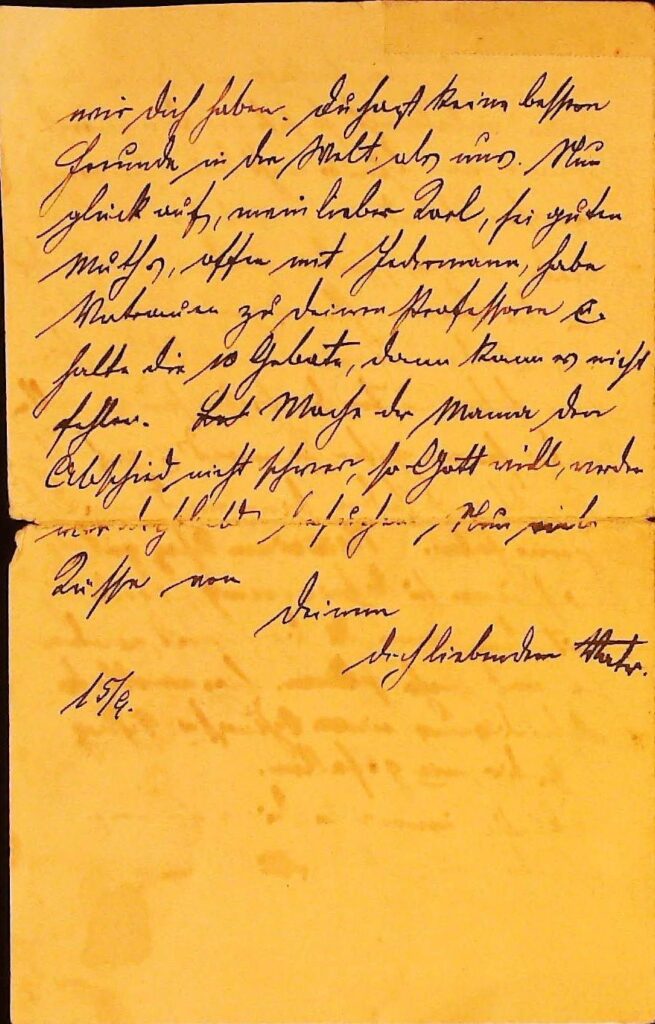 wir Dich haben. Du hast keine bessern
Freunde in der Welt als uns. Nun
glück auf, mein lieber Karl, sei guten
Muths, offen mit Jedermann, habe
Vertrauen zu Deinen Professoren &
halte die 10 Gebote, dann kann es nicht
fehlen. Mache der Mama den
Abschied nicht schwer, so Gott will, werden
wir Dich bald besuchen. Nun viele
Küsse von
Deinem
Dich liebenden Vater.
15/9.